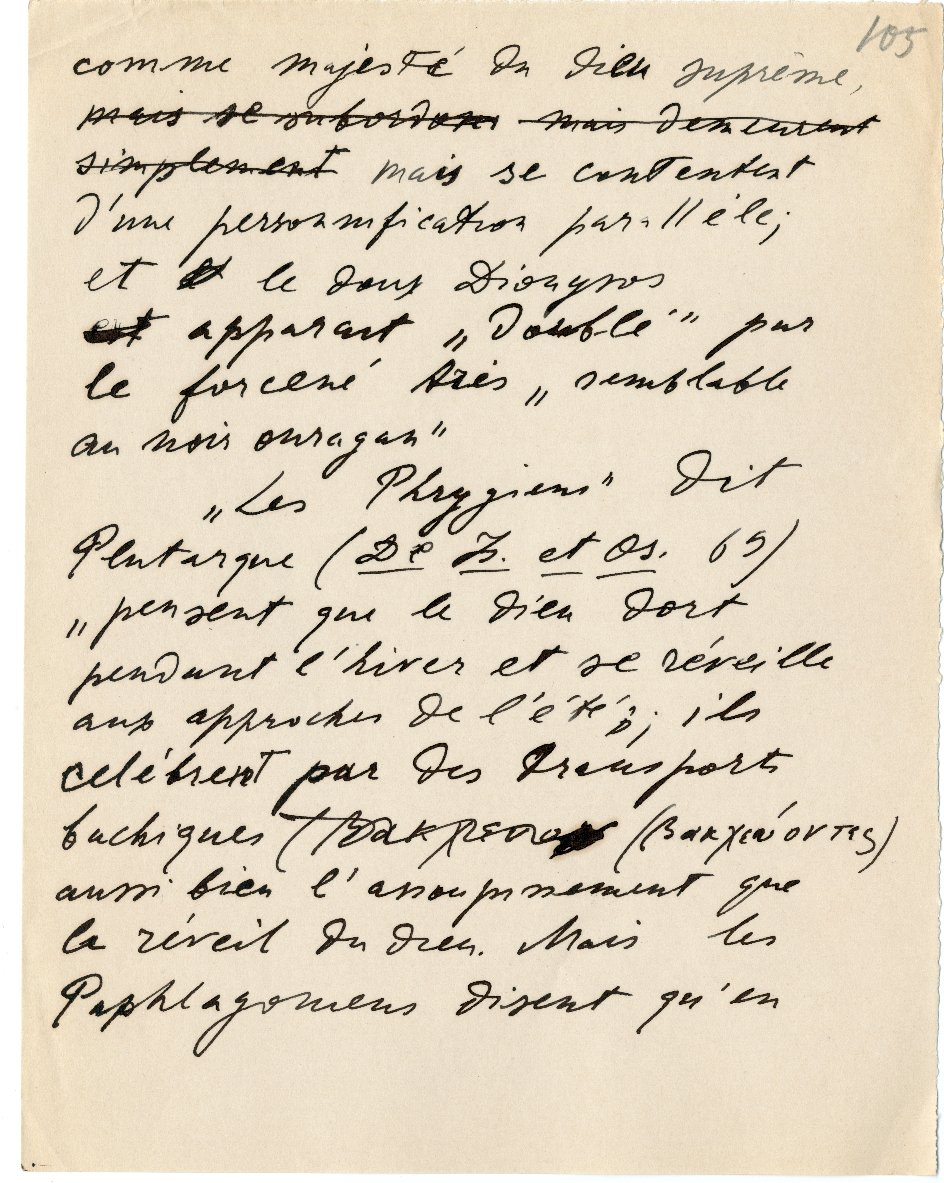 105
comme majesté du dieu suprême,
mais se subordon mais demeurent
simplement mais se contentent
d'une personnification parallèle;
et le doux Dionysos
est apparait „doublé” par
le forcené Arès „semblable
au noir ouragan”
„Les Phrygiens” dit
Plutarque (De Is. et Os. 69)
„pensent que le dieu dort
pendant l'hiver et se réveille
aux approches de l'été; ils
celébrent par des transports
bachiques (βακχεύοντες)
aussi bien l'assoupissement que
le réveil du dieu. Mais les
Paphlagoniens disent qu'en